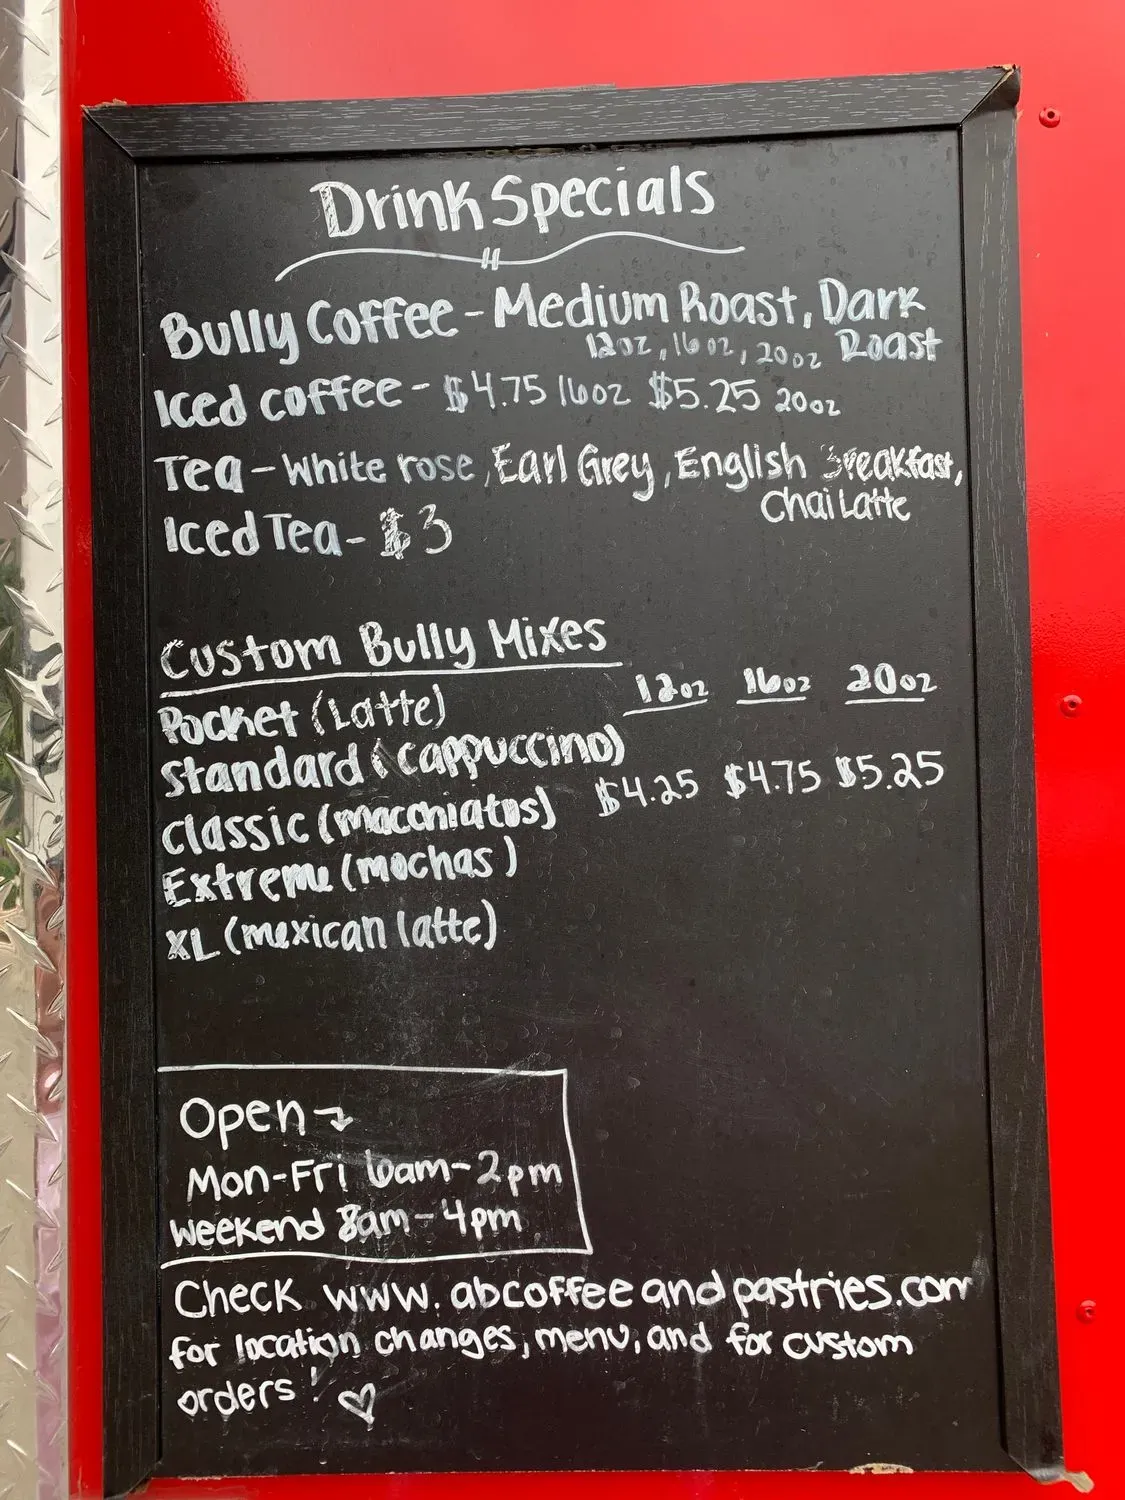 Drink Specials
Bully Coffee - Medium Roast, Dark
12oz, 16oz, 20oz Roast
Iced coffee - $4.75 16oz $5.25 20oz
Tea - White rose, Earl Grey, English Breakfast,
Chai Latte
Iced Tea - $3
Custom Bully Mixes
12oz 16oz 20oz
Pocket (Latte)
Standard (cappuccino)
$4.25 $4.75 $5.25
Classic (macchiatos)
Extreme (mochas)
XL (mexican latte)
Open
Mon-Fri 6am-2pm
Weekend 8am-4pm
Check www.abcoffeeandpastries.com
for location changes, menu, and for custom
orders! ♡